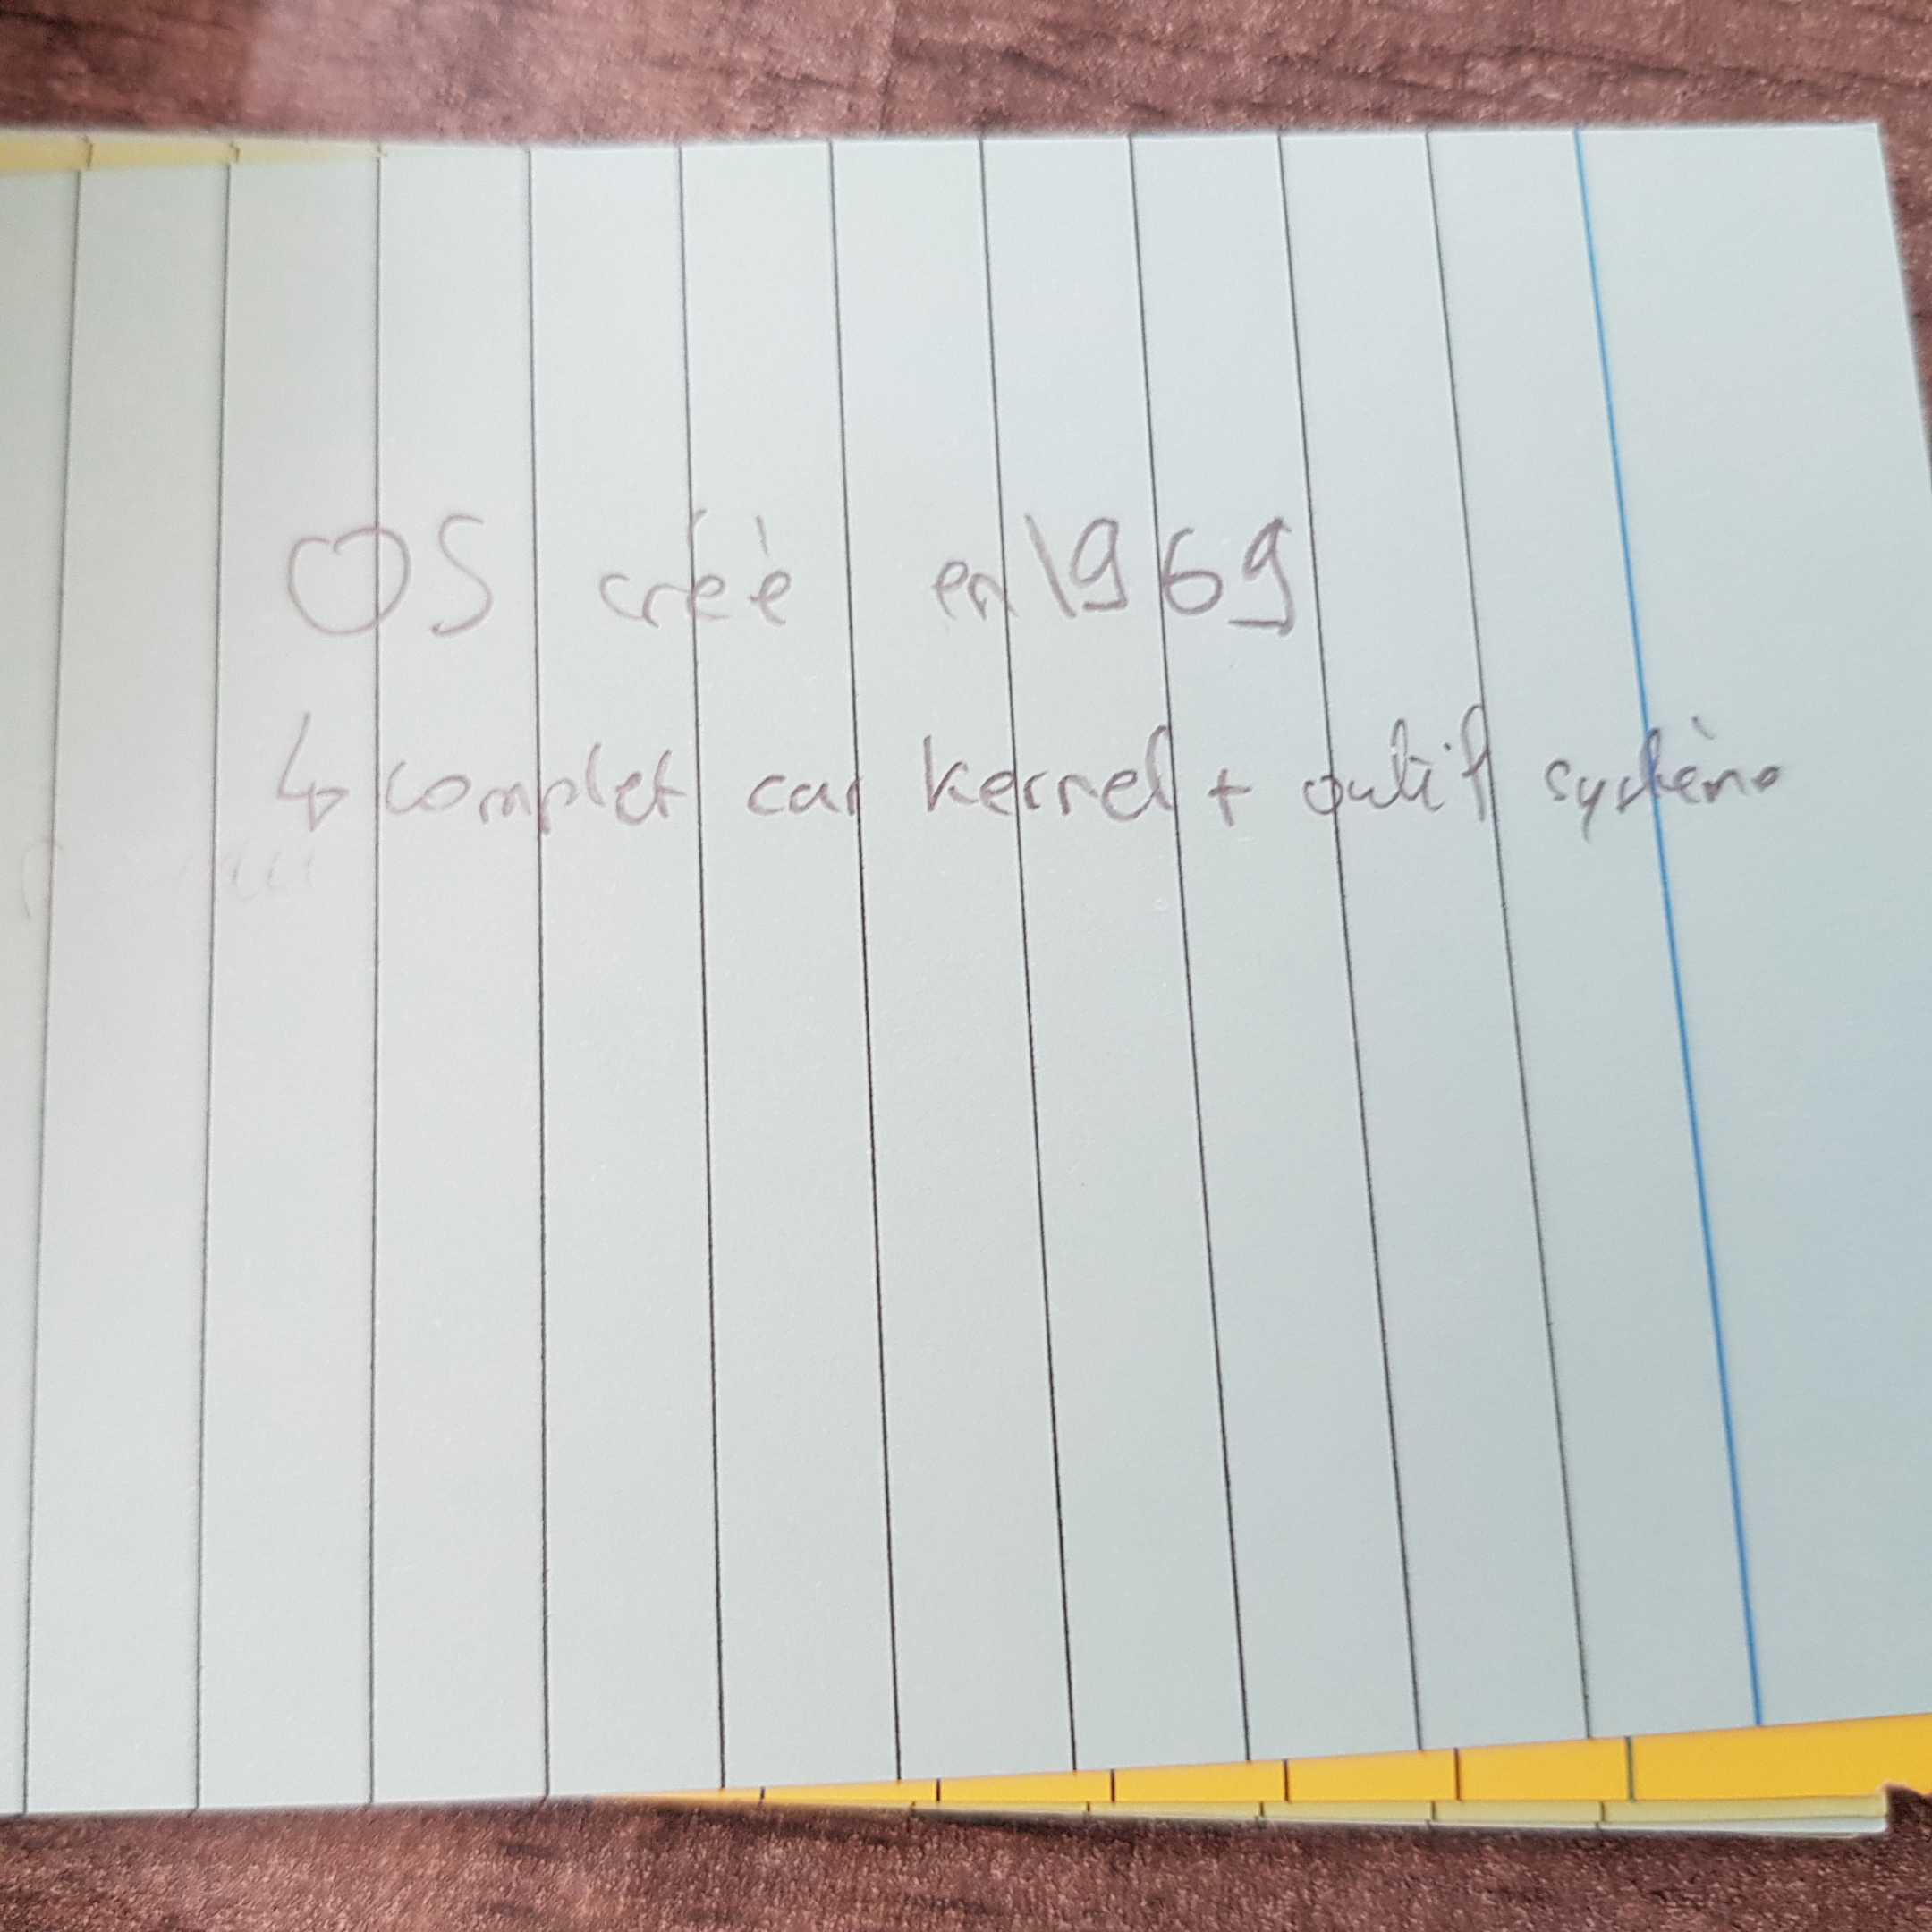 OS créé en 1969
↳ complet car kernel + outil système